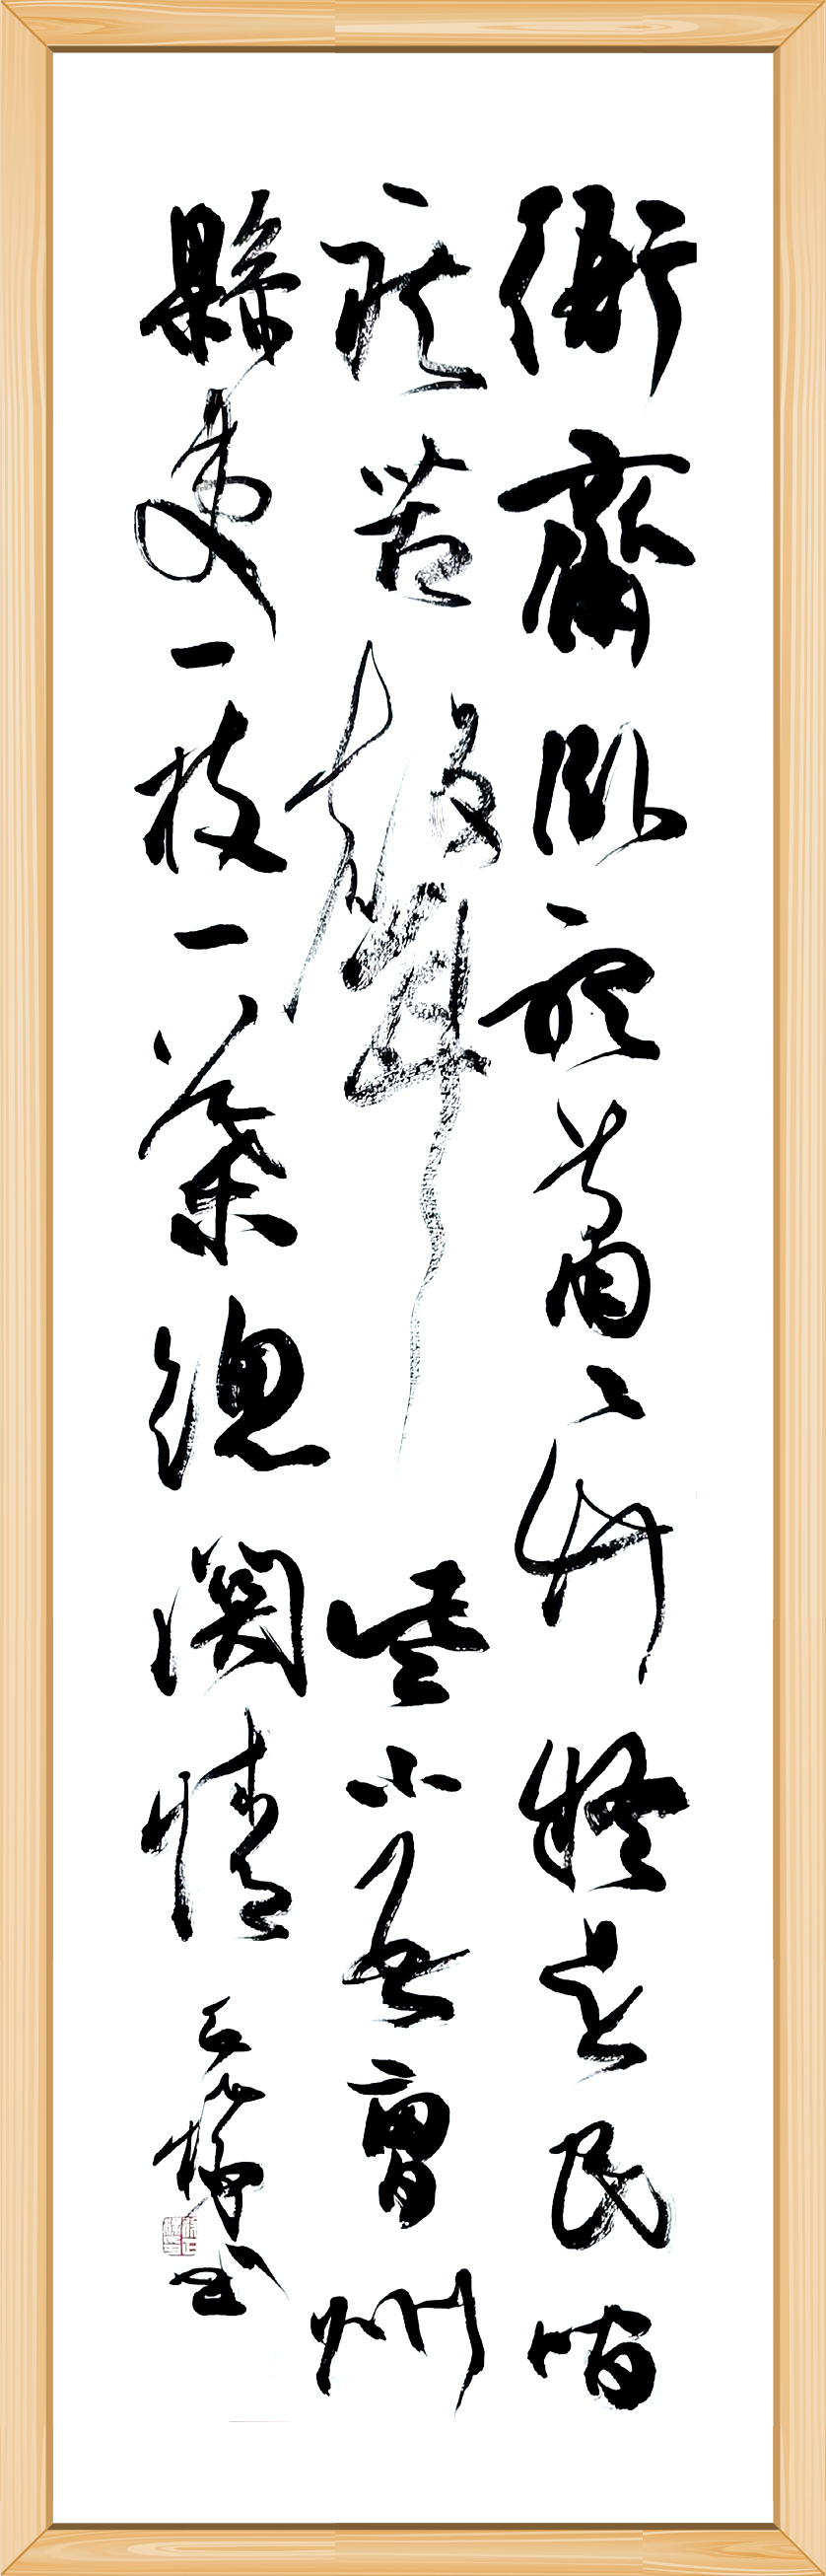 衙齋卧聽蕭々竹疑是民間
疾苦聲些小吾曹州
縣吏一枝一葉總關情
书